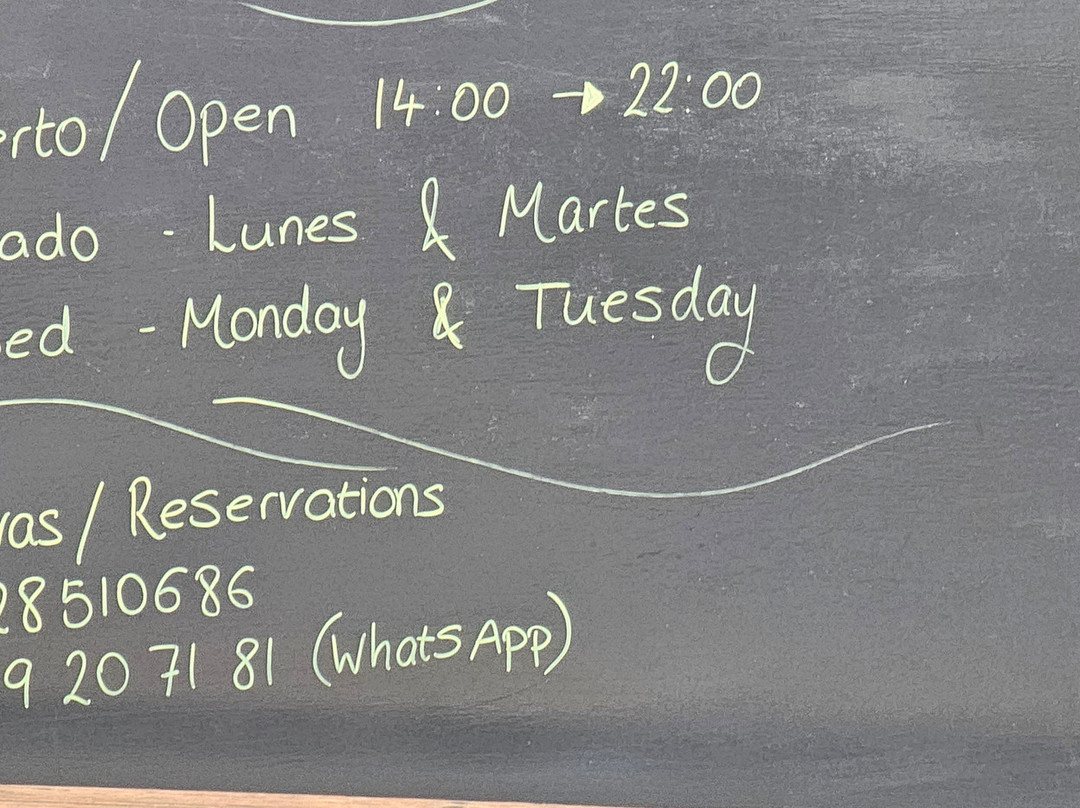 erto / Open 14:00 → 22:00
ado - Lunes & Martes
ed - Monday & Tuesday
vas / Reservations
28510686
9 20 71 81 (WhatsApp)